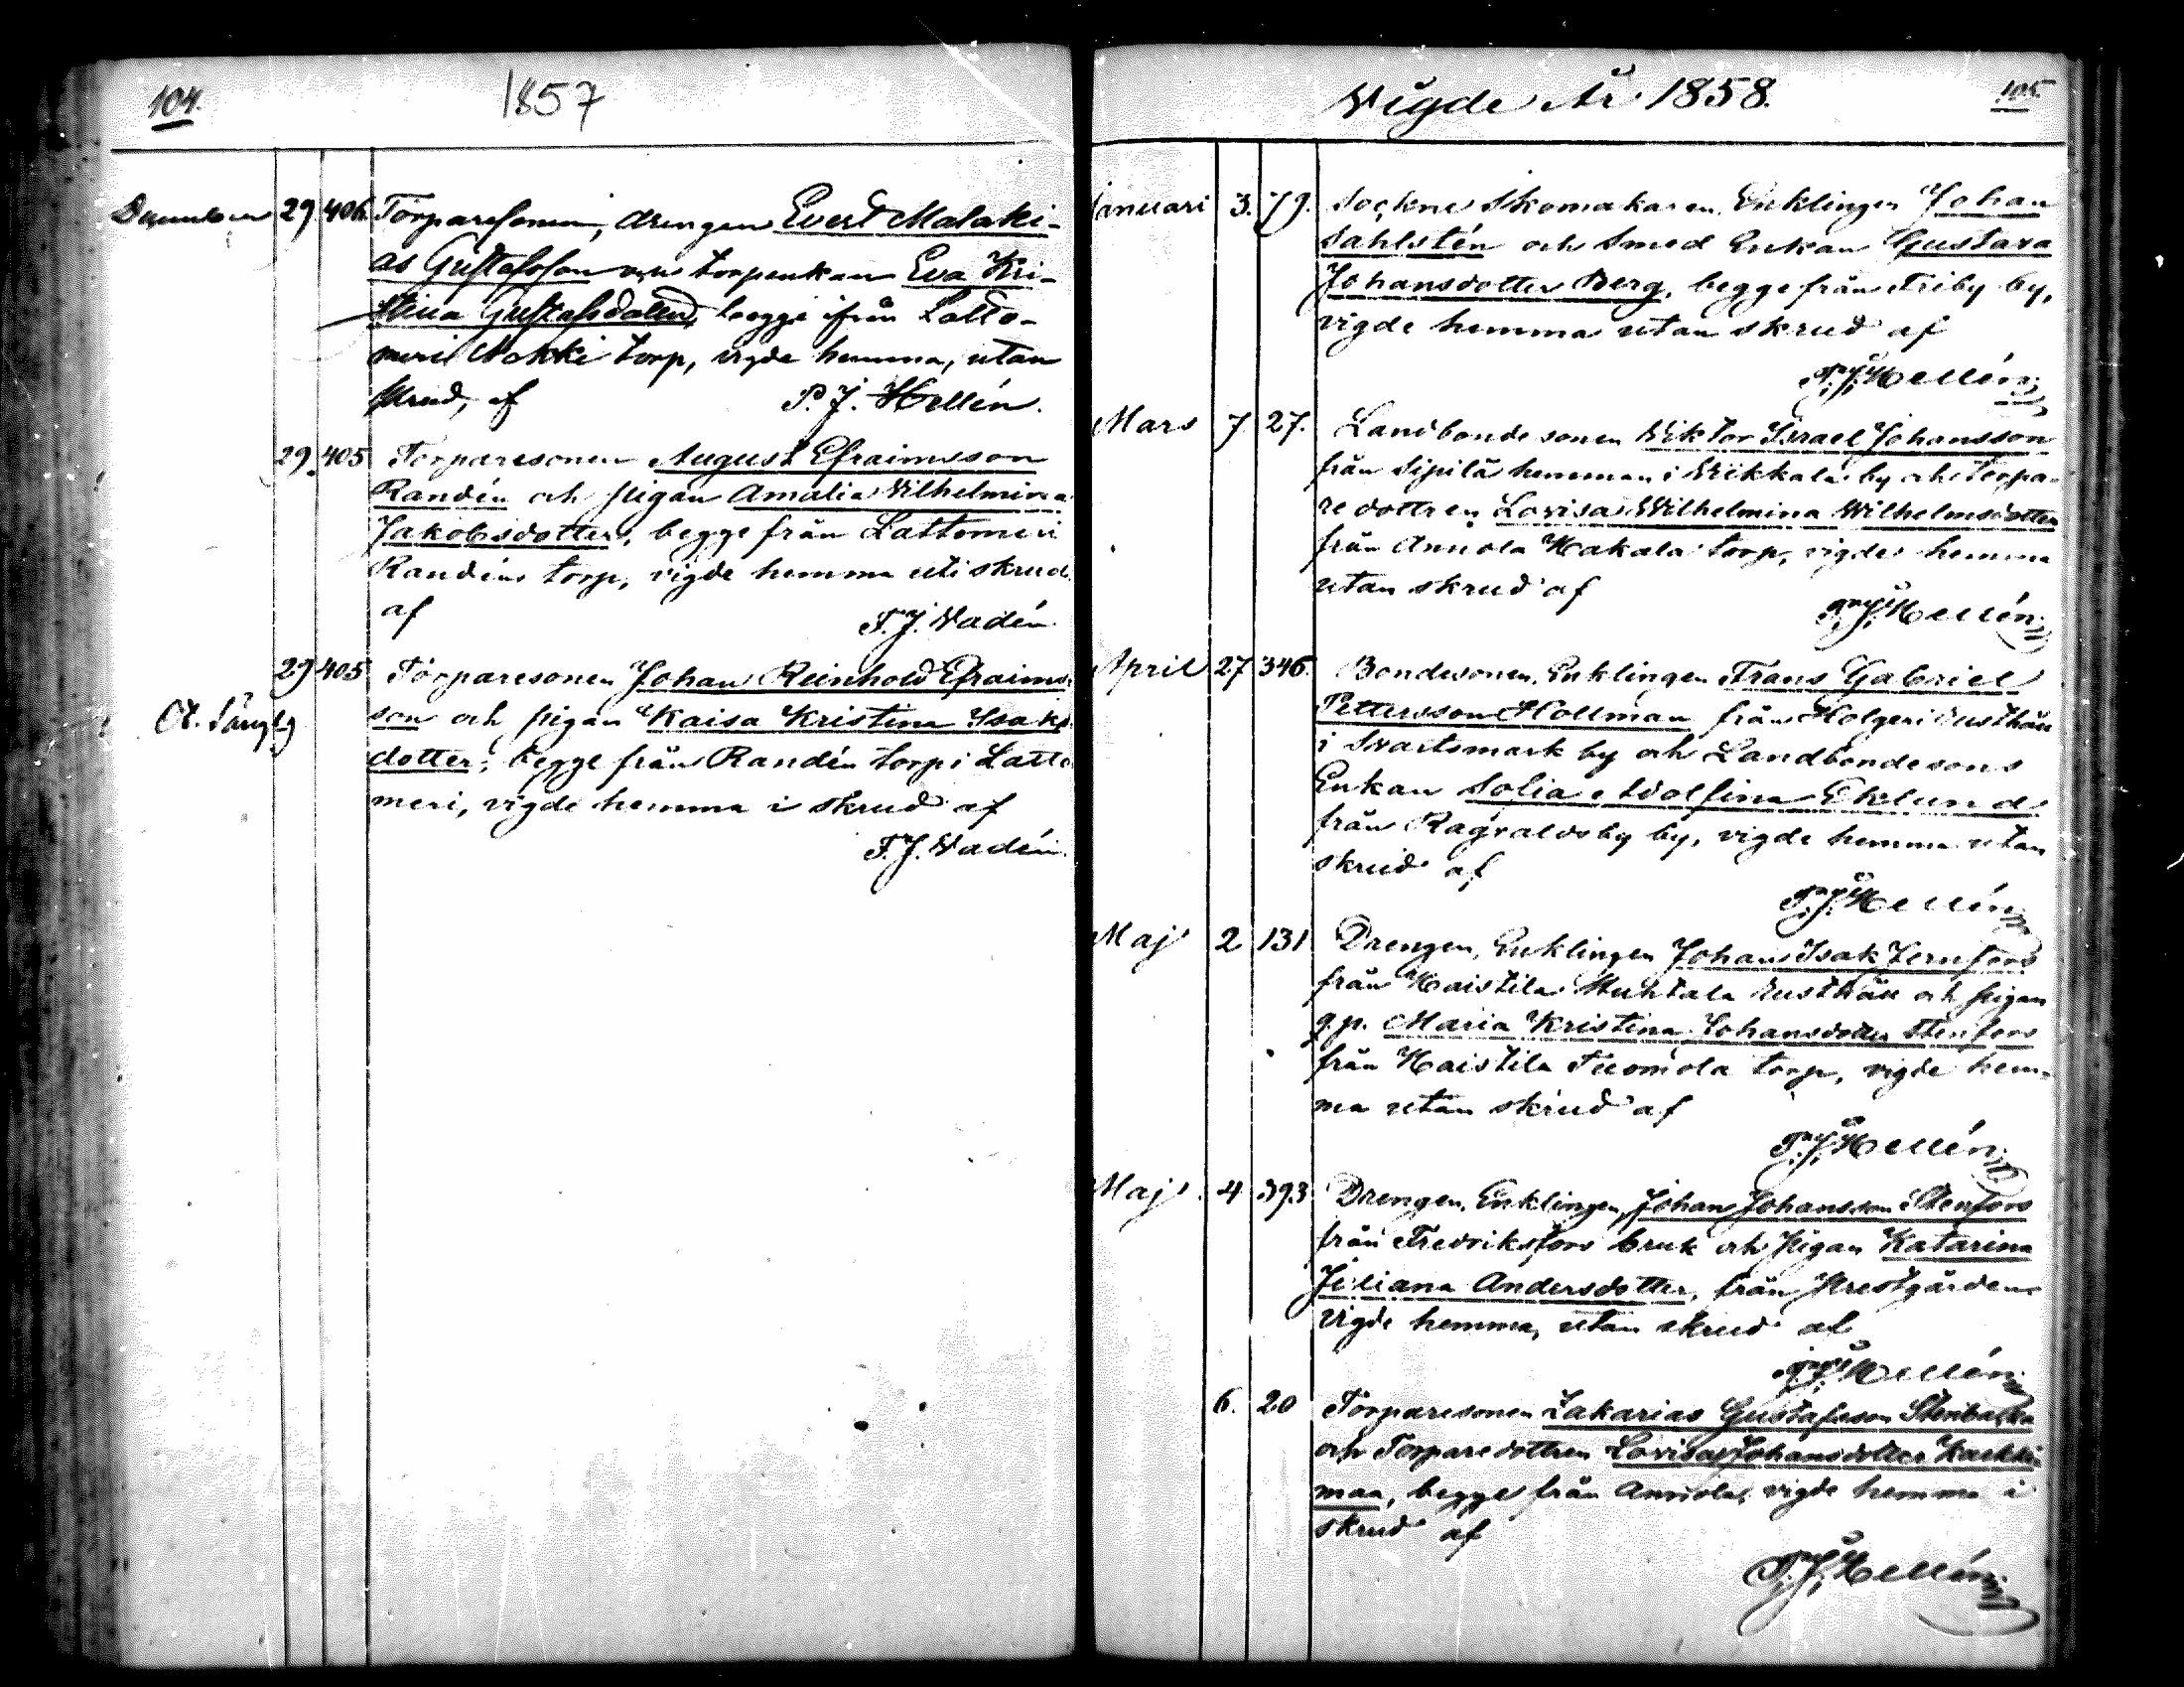 104.
1857
December 29 406. Torparesonen, drengen Evert Malaki-
as Gustafsson och torpenkan Eva Kri-
stina Gustafsdotter, begge ifrån Latto-
meri Nokki torp, vigde hemma, utan
skrud, af P. J. Hellén.
29. 405 Torparesonen August Efraimsson
Randén och pigan Amalia Wilhelmina
Jakobsdotter, begge från Lattomeri
Randéns torp, vigde hemma uti skrud
af F. J. Wadén.
29 405 Torparesonen Johan Reinhold Efraims-
son och pigan Kaisa Kristina Isaks
dotter, begge från Randén torp i Latto
meri, vigde hemma i skrud af
F. J. Wadén.
Vigde År 1858.
105.
Januari 3. 79. Sockne Skomakaren, Enklingen Johan
Sahlstén och Smed Enkan Gustava
Johansdotter Berg, begge från Friby by,
vigde hemma utan skrud af
P. J. Hellén
Mars 7 27. Landbondesonen Wiktor Israel Johansson
från Sipilä hemman i Wikkala by och Torpa-
redottren Lovisa Wilhelmina Wilhelmsdotter
från Annola Hakala torp, vigde hemma
utan skrud af
P. J. Hellén
April 27 346. Bondesonen, Enklingen Frans Gabriel
Pettersson Hollman från Holgeri Rusthåll
i Svartsmark by och Landbondesons
Enkan Sofia Adolfina Eklund
från Ragvaldsby by, vigde hemma utan
skrud af
P. J. Hellén
Maj 2 131 Drengen, Enklingen Johan Isak Jernfors
från Haistila Huhtala Rusthåll och pigan
q.p. Maria Kristina Johansdotter Stenfors
från Haistila Tuomola torp, vigde hem-
ma utan skrud af
P. J. Hellén
Maj 4 393 Drengen, Enklingen, Johan Johansson Stenfors
från Fredriksfors bruk och pigan Katarina
Juliana Andersdotter, från Prestgården
vigde hemma, utan skrud af
P. J. Hellén
6. 20 Torparesonen Zakarias Gustafsson Stenbacka
och Torparedottren Lovisa Johansdotter
maa, begge från Annola, vigde hemma i
skrud af
P. J. Hellén